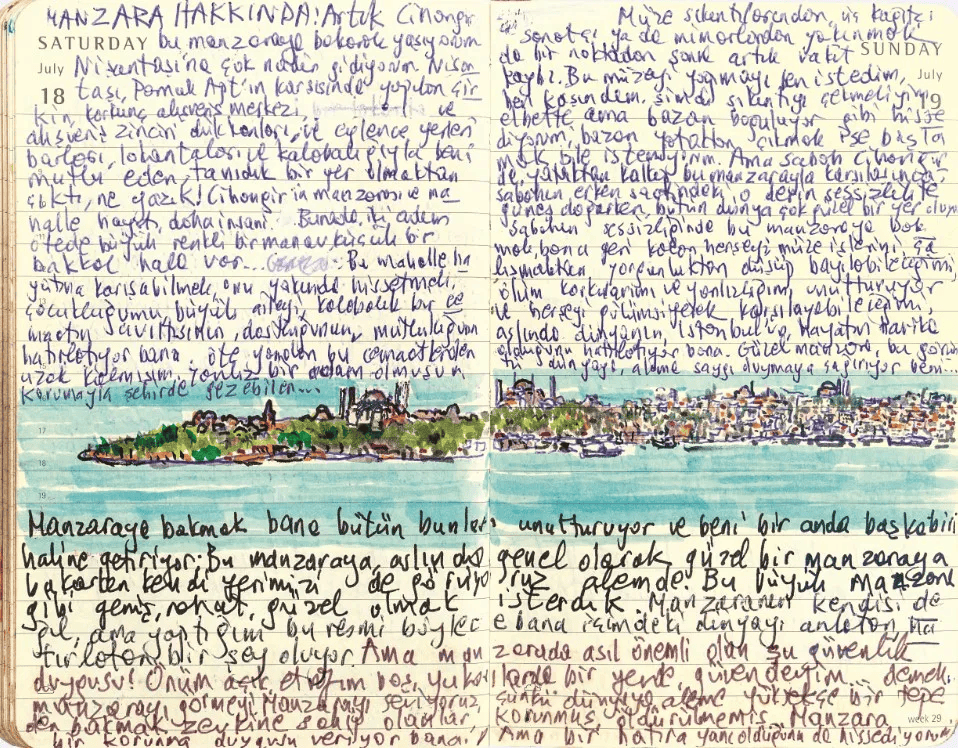 MANZARA HAKKINDA: Artık Cihangir
SATURDAY bu manzaraya bakarak yaşıyorum
July Nişantaşı'na çok nadir gidiyorum. Nişan
18 taşı, Pamuk Apt'ın karşısında yapılan çir
kin, korkunç alışveriş merkezi, ve
alışveriş zinciri dükkanları, ve eğlence yerleri
barları, lokantaları ve kalabalığıyla beni
mutlu eden, tanıdık bir yer olmaktan
çıktı, ne yazık! Cihangir'in manzarası ve ma
halle hayatı daha insani. Burada iki adım
ötede büyük renkli bir manav küçük bir
bakkal hala var... Bu mahalle ha
yatına karışabilmek, onu yakında hissetmek,
çocukluğumu, büyük aileyi, kalabalık bir ce
maatin cıvıltısının, dostluğunun, mutluluğun
hatırlatıyor bana. Öte yandan bu cemaatlerden
uzak kaçmışım, yalnız bir adam olmuşum
korumayla şehirde gezebilen...
Müze sıkıntılarından, üç kağıtçı
sanatçı ya da mimarlardan yakınmak
da bir noktadan sonra artık vakit SUNDAY
kaybı. Bu müzeyi yapmayı ben istedim, July
ben kaşındım, şimdi sıkıntıyı çekmeliyim 19
elbette ama bazan boğuluyor gibi hisse
diyorum, bazan yataktan çıkmak ise başla
mak bile istemiyorum. Ama sabah Cihangir
de yataktan kalkıp bu manzarayla karşılaşınca,
sabahın erken saatindeki o derin sessizlikte
güneş doğarken, bütün dünya çok güzel bir yer oluyor
Sabahın sessizliğinde bu manzaraya bak
mak, bana geri kalan herşeyi müze işlerini, ça
lışmaktan yorgunluktan düşüp bayılabileceğimi,
ölüm korkularımı ve yalnızlığımı, unutturuyor
ve herşeyi gülümsiyerek karşılayabileceğimi,
aslında dünyanın, İstanbul'un, Hayatın harika
olduğunu hatırlatıyor bana. Güzel manzara, bu görün
tü dünyayı, aleme saygı duymaya çağırıyor beni...
17
18
19
Manzaraya bakmak bana bütün bunları unutturuyor ve beni bir anda başka biri
haline getiriyor. Bu manzaraya, aslında genel olarak güzel bir manzaraya
bakarken kendi yerimizi de görüyoruz alemde. Bu büyük manzara
gibi geniş, rahat, güzel olmak isterdik. Manzaranın kendisi de
ğil, ama yaptığım bu resmi böylece bana içimdeki dünyayı anlatan ha
tırlatan bir şey oluyor. Ama manzarada asıl önemli olan şu güvenlik
duygusu! Önüm açık etrafım boş, yukarılarda bir yerde güvendeyim... demek.
manzarayı görmeyi, Manzarayı seviyoruz, çünkü dünyaya, aleme yüksekçe bir tepe
den bakmak zevkine sahip olanlar korunmuş, öldürülmemiş. Manzara week 29
bir korunma duygusu veriyor bana. Ama bir hatıra yanı olduğunu da hissediyorum